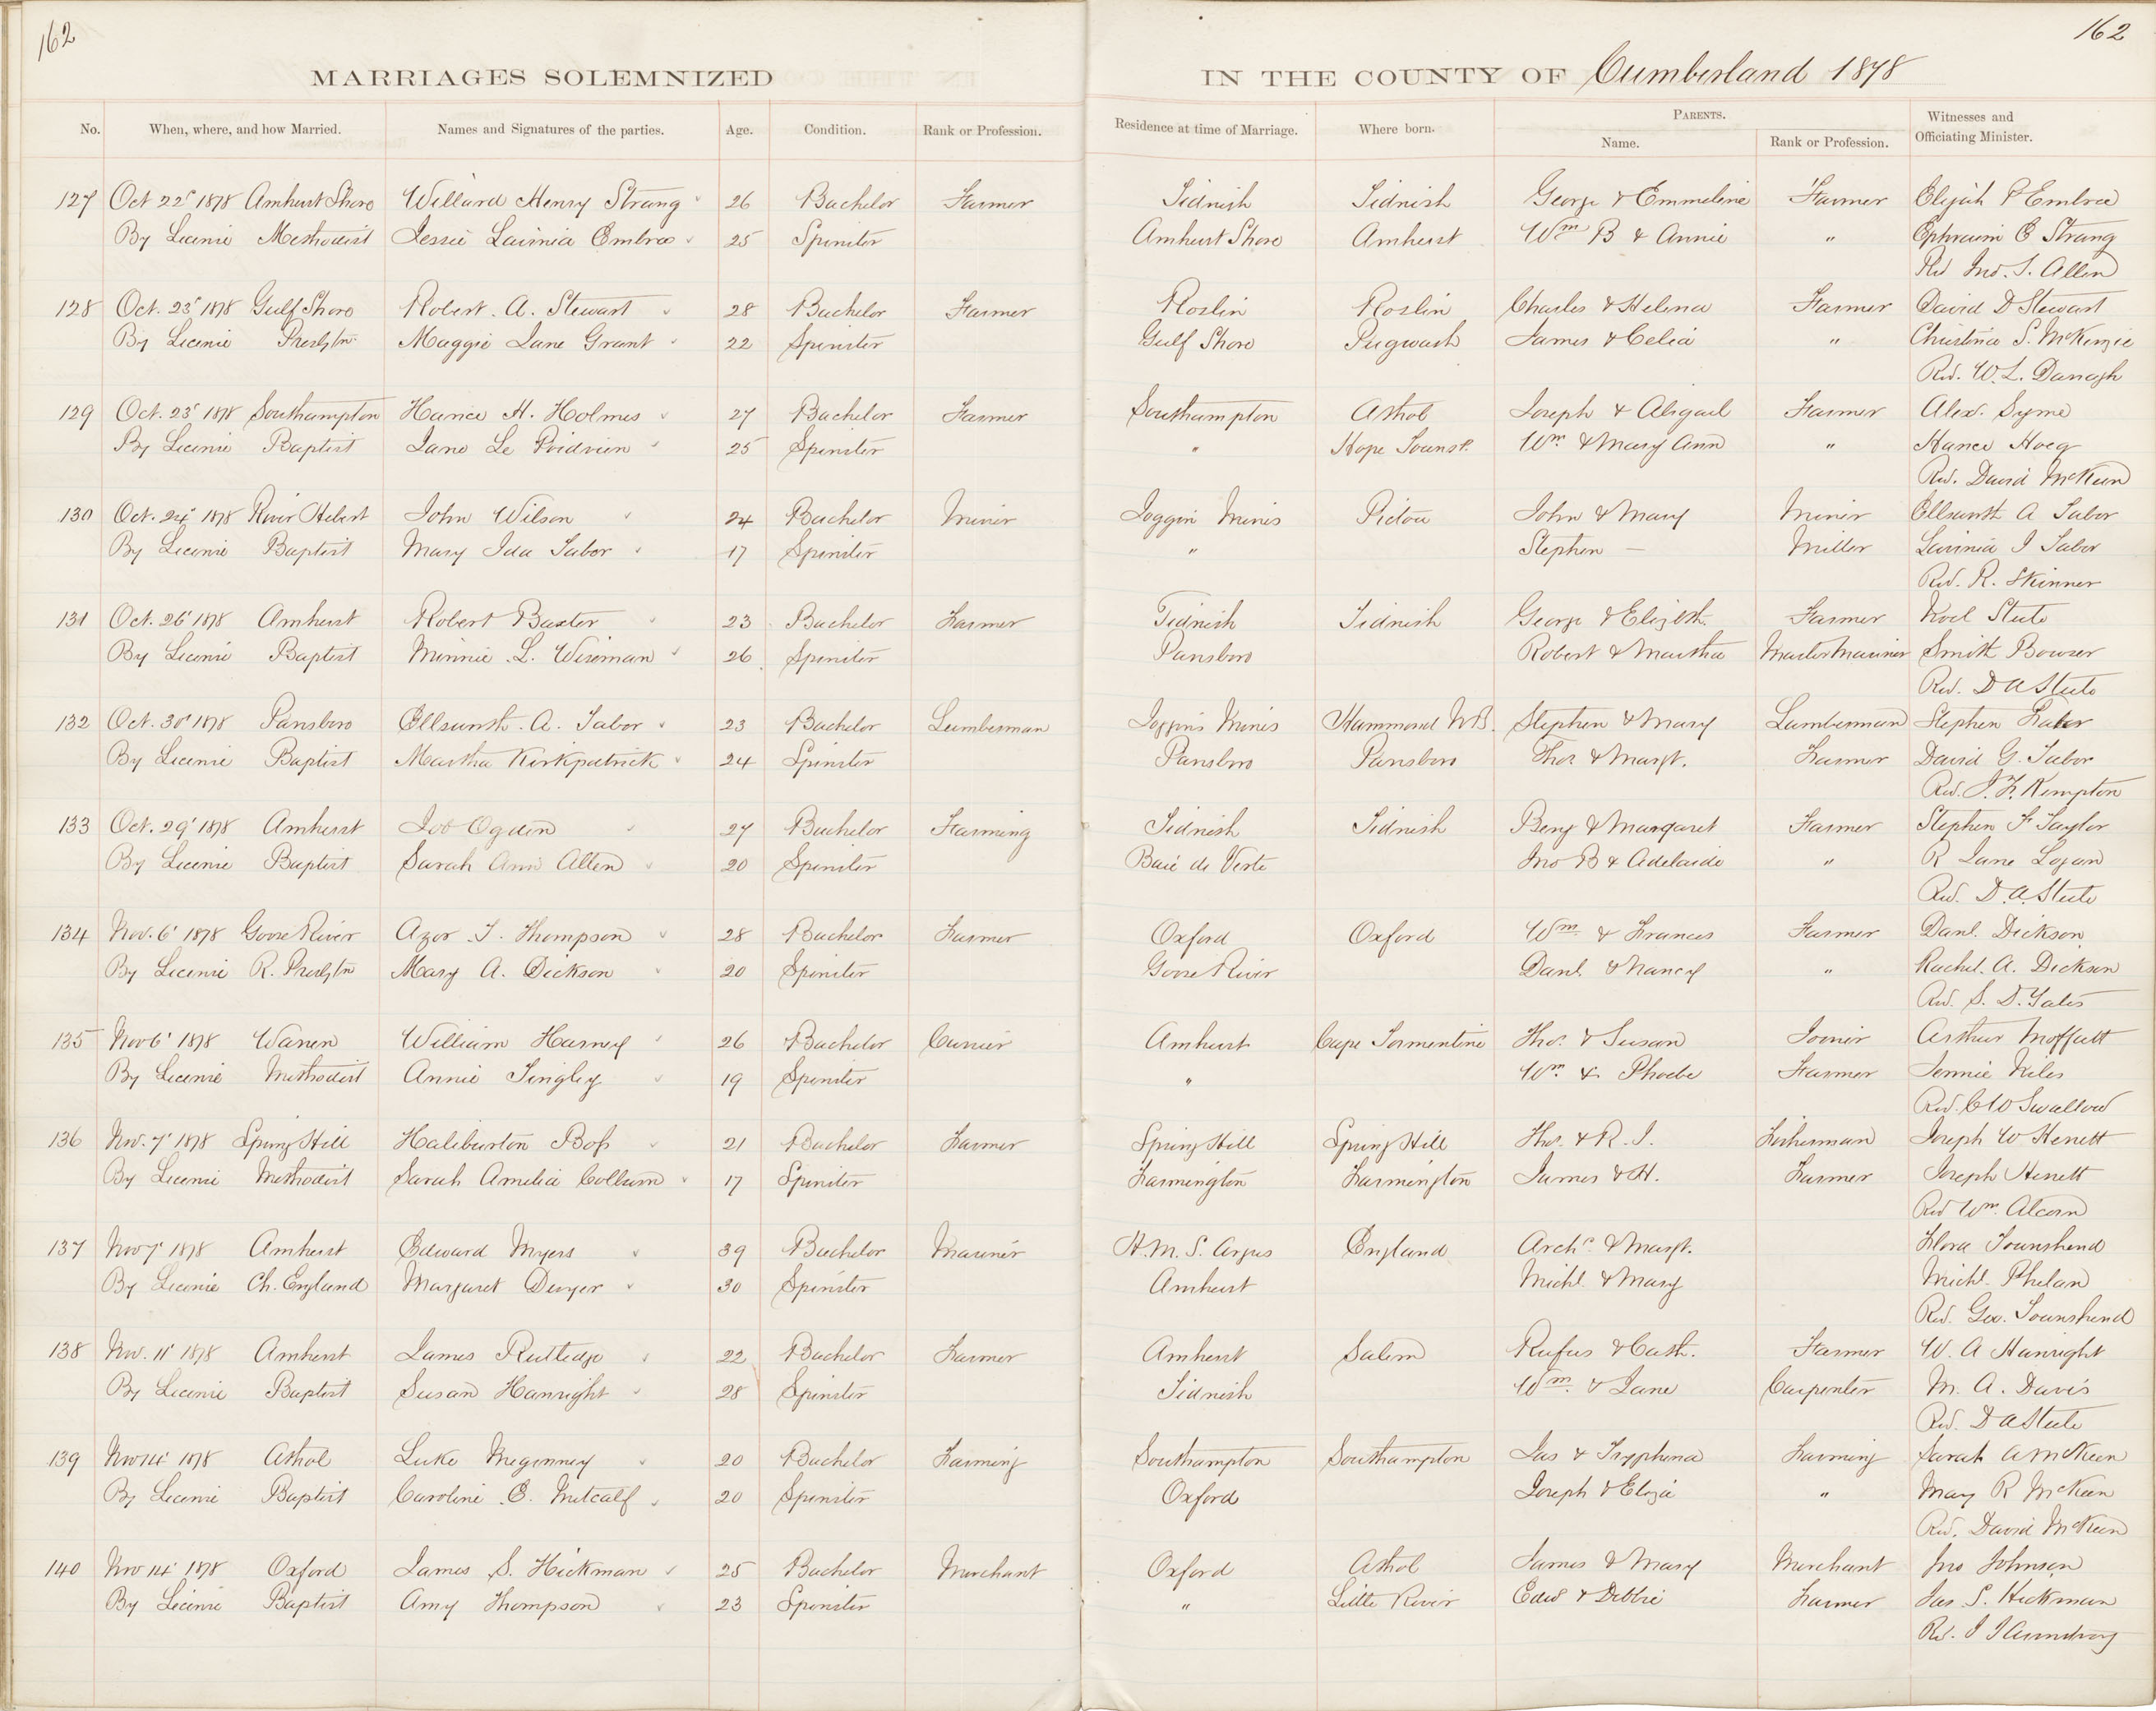 162
162
MARRIAGES SOLEMNIZED IN THE COUNTY OF Cumberland 1878
No. When, where, and how Married. Names and Signatures of the parties. Age. Condition. Rank or Profession. Residence at time of Marriage. Where born. PARENTS. Witnesses and
Name. Rank or Profession. Officiating Minister.
127 Oct 22' 1878 Amherst Shore Willard Henry Strang 26 Bachelor Farmer Tidnish Tidnish George & Emmeline Farmer Elijah P Embree
By License Methodist Jessie Lavinia Embree 25 Spinster Amherst Shore Amherst Wm B & Annie " Ephraim E Strang
Rev Jno. S. Allen
128 Oct. 23' 1878 Gulf Shore Robert. A. Stewart 28 Bachelor Farmer Roslin Roslin Charles & Helena Farmer David D Stewart
By License Presbytn. Maggie Jane Grant 22 Spinster Gulf Shore Pugwash James & Celia " Christina S. McKenzie
Rev. W. L. Darragh
129 Oct. 23' 1878 Southampton Hance H. Holmes 27 Bachelor Farmer Southampton Athol Joseph & Abigail Farmer Alex. Syme
By License Baptist Jane Le Poidvin 25 Spinster " Hope Townsp. Wm. & Mary Ann " Hance Hoeg
Rev. David McKeen
130 Oct. 24' 1878 River Hebert John Wilson 24 Bachelor Miner Joggin Mines Pictou John & Mary Miner Ellsunth A Tabor
By License Baptist Mary Ida Tabor 17 Spinster " Stephen — Miller Lavinia I Tabor
Rev. R. Skinner
131 Oct. 26' 1878 Amherst Robert Baxter 23 Bachelor Farmer Tidnish Tidnish George & Elizbth. Farmer Noel Steele
By License Baptist Minnie L. Wiseman 26 Spinster Parrsboro Robert & Martha Master Mariner Smith Bowser
Rev. D A Steele
132 Oct. 30' 1878 Parrsboro Ellsunth. A. Tabor 23 Bachelor Lumberman Joggins Mines Hammond N.B. Stephen & Mary Lumberman Stephen Tabor
By License Baptist Martha Kirkpatrick 24 Spinster Parrsboro Parrsboro Thos & Margt. Farmer David G. Tabor
Rev. J. F. Kempton
133 Oct. 29' 1878 Amherst Job Ogden 27 Bachelor Farming Tidnish Tidnish Benj & Margaret Farmer Stephen F Taylor
By License Baptist Sarah Ann Allen 20 Spinster Baie de Verte Jno B & Adelaide " R Jane Logan
Rev. D. A. Steele
134 Nov. 6' 1878 Goose River Azor T. Thompson 28 Bachelor Farmer Oxford Oxford Wm. & Frances Farmer Danl. Dickson
By License R. Presbytn Mary A. Dickson 20 Spinster Goose River Danl. & Nancy " Rachel. A. Dickson
Rev. S. D. Yates
135 Nov 6' 1878 Warren William Harney 26 Bachelor Currier Amherst Cape Tormentine Thos. & Susan Joiner Arthur Moffatt
By License Methodist Annie Tingley 19 Spinster " Wm. & Phoebe Farmer Jennie Niles
Rev. C W Swallow
136 Nov. 7' 1878 Spring Hill Haliburton Boss 21 Bachelor Farmer Spring Hill Spring Hill Thos. & R. I. Fisherman Joseph W Herrett
By License Methodist Sarah Amelia Collum 17 Spinster Farmington Farmington James & H. Farmer Joseph Herrett
Rev Wm. Alcorn
137 Nov 7' 1878 Amherst Edward Myers 39 Bachelor Mariner H. M. S. Argus England Archd. & Margt. Flora Townshend
By License Ch. England Margaret Dwyer 30 Spinster Amherst Michl. & Mary Michl. Phelan
Rev. Geo. Townshend
138 Nov. 11' 1878 Amherst James Rutledge 22 Bachelor Farmer Amherst Salem Rufus & Cath. Farmer W. A Hanright
By License Baptist Susan Hanright 28 Spinster Tidnish Wm. & Jane Carpenter M. A. Davis
Rev. D A Steele
139 Nov 14' 1878 Athol Luke Meginney 20 Bachelor Farming Southampton Southampton Jas & Tryphena Farming Sarah A McKeen
By License Baptist Caroline E. Metcalf 20 Spinster Oxford Joseph & Eliza " Mary R McKeen
Rev. David McKeen
140 Nov 14' 1878 Oxford James S. Hickman 25 Bachelor Merchant Oxford Athol James & Mary Merchant Jno Johnson
By License Baptist Amy Thompson 23 Spinster " Little River Edwd & Debbie Farmer Jas. S. Hickman
Rev. I J Armstrong